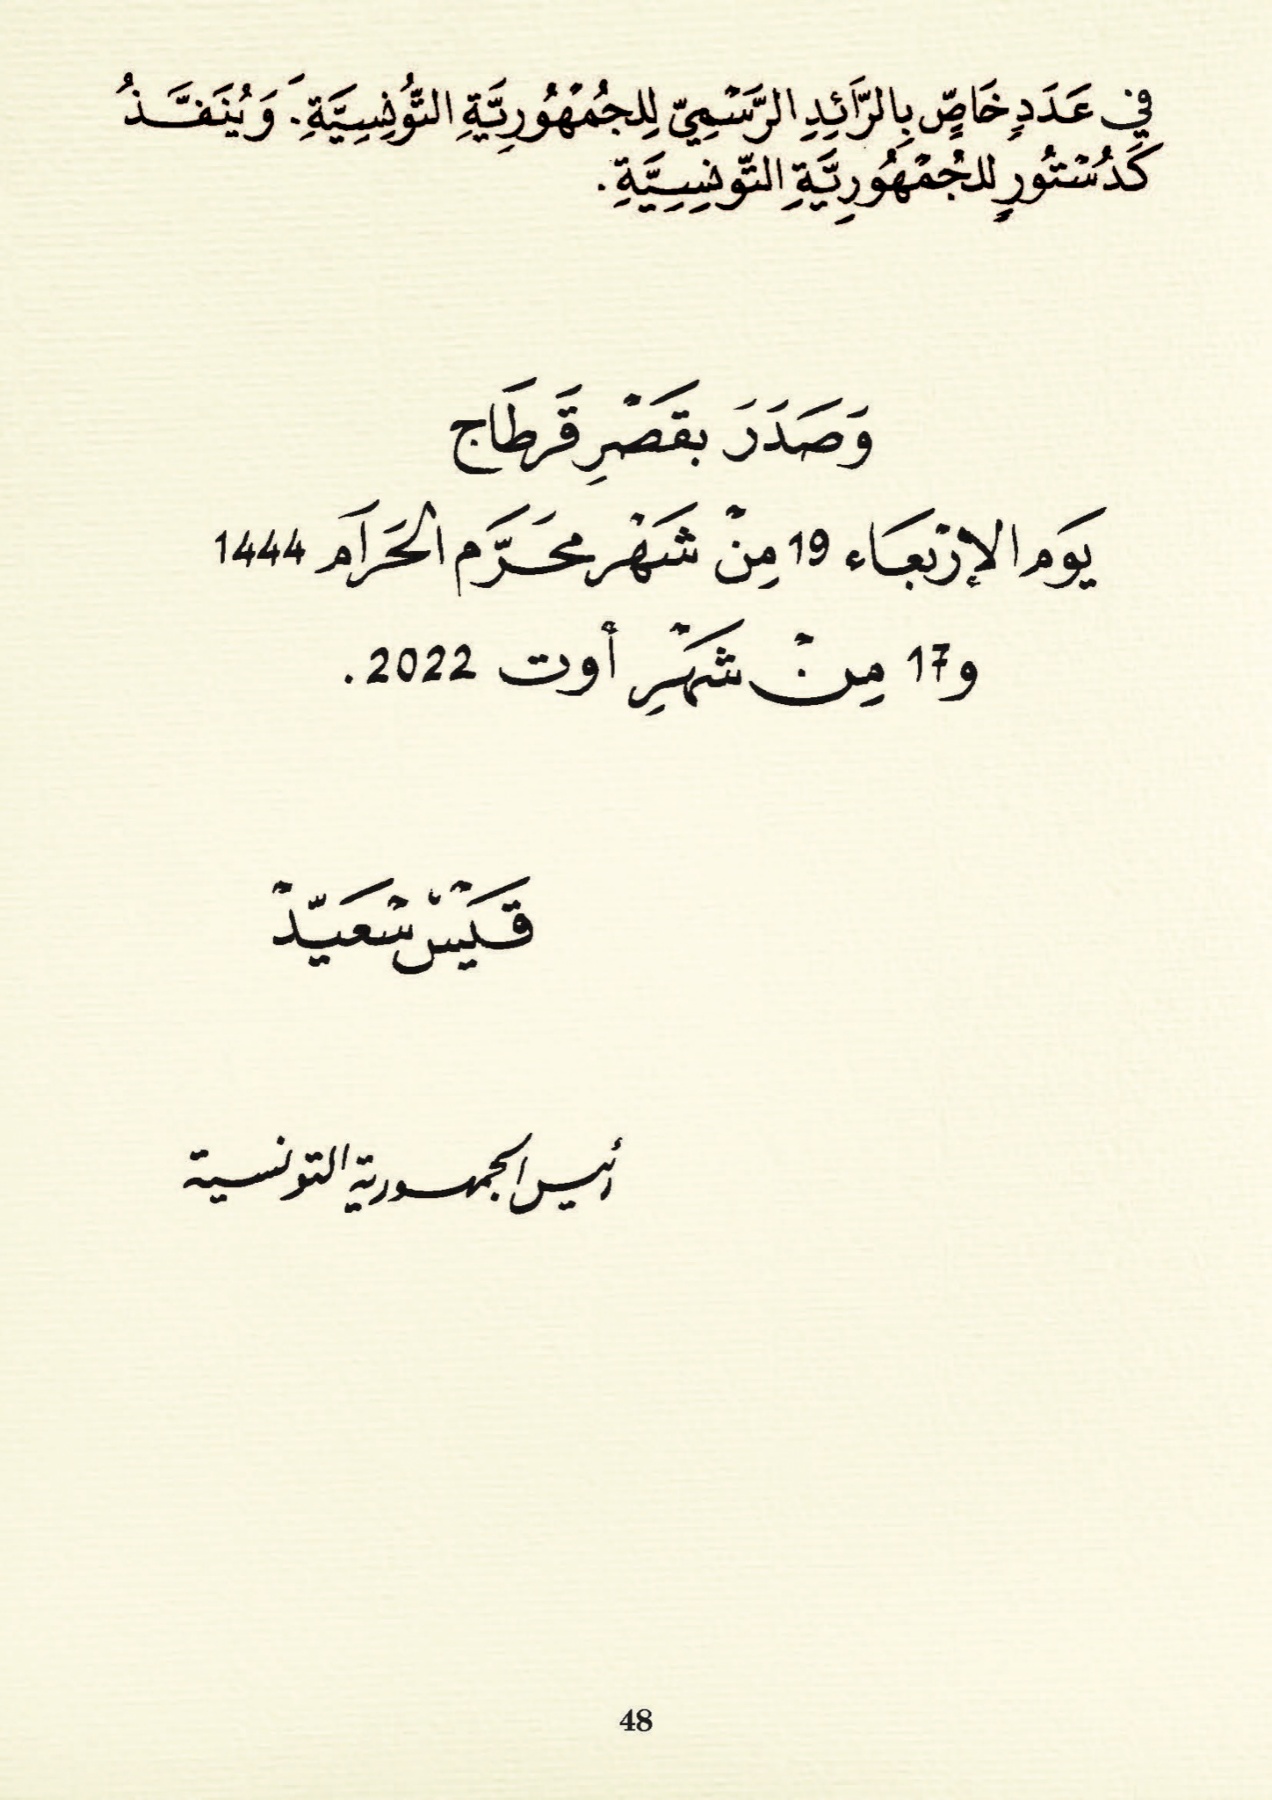 في عَدَدٍ خَاصٍّ بِالرَّائِدِ الرَّسْمِيّ لِلجُمْهُورِيَّةِ التُّونِسِيَّةِ. وَيُنَفَّذُ
كَدُسْتُورٍ للجُمْهُورِيَّةِ التّونِسِيَّةِ.
وَصَدَرَ بقَصْرِ قَرطَاج
يَوَم الإرْبَعَاء 19 مِنْ شَهْر محَرَّم الحَرَام 1444
و17 مِنْ شَهْرِ أوت 2022.
قَيْسْ سْعَيّدْ
رئيس الجمهورية التونسية
48